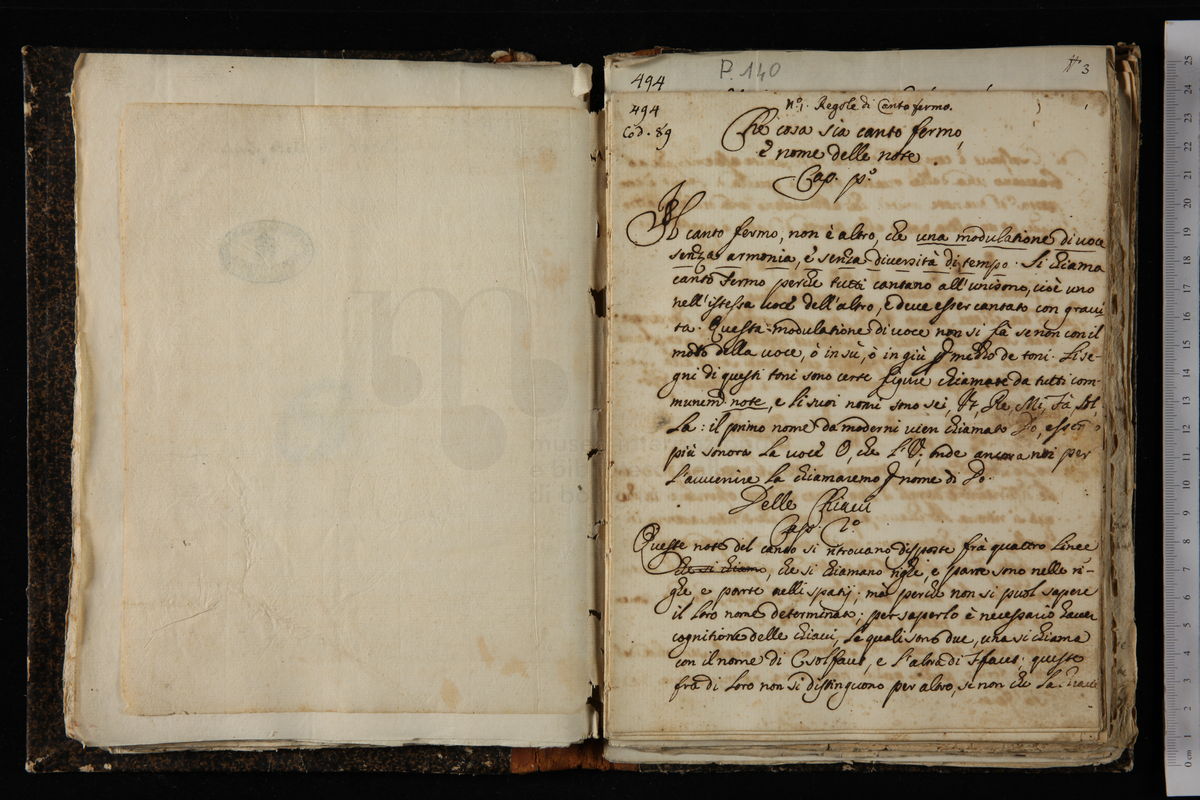 494
P. 140
3
494
Cod. 89
N.º 1. Regole di Canto fermo.
Che cosa sia canto fermo,
è nome delle note
Cap. pº
Il canto fermo, non è altro, che una modulatione di voce
senza armonia, è senza diversità di tempo. Si chiama
canto fermo perche tutti cantano all'unisono, cioè uno
nell'istessa voce dell'altro, e deve esser cantato con gravi
ta. Questa modulatione di voce non si fà se non con il
moto della voce, ò in sù, ò in giù medio de toni. Li se-
gni di questi toni sono certe figure chiamate da tutti com-
munem. note, e li suoi nomi sono sei, Vt, Re, Mi, Fà, Sol,
La: il primo nome da moderni vien chiamato Do, esser
più sonora la voce O, che l'V; onde ancora noi per
l'avvenire la chiamaremo nome di Do.
Delle Chiavi
Cap. 2º
Queste note del canto si ritrovano disposte frà quattro linee
che si chiamo, che si chiamano righe, e parte sono nelle ri-
ghe e parte nelli spatij; mà perche non si puol sapere
il loro nome determinato; per saperlo è necessario haver
cognitione delle chiavi, le quali sono due, una si chiama
con il nome di Csolfaut, e l'altra di Ffaut; queste
frà di loro non si distinguono per altro, se non che la chiave